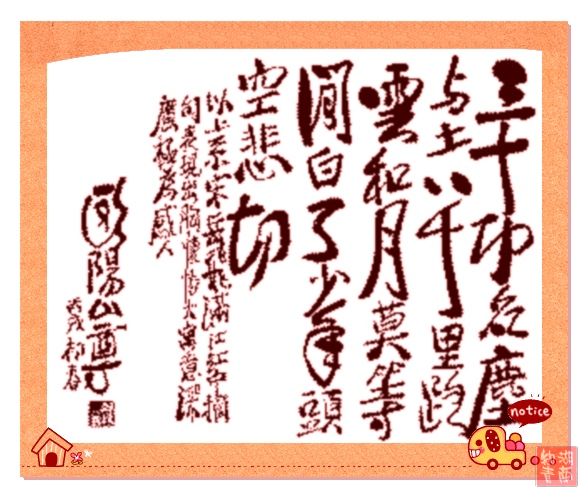 三十功名塵
与土八千里路
雲和月莫等
閒白了少年頭
空悲切
以上系宋岳飛滿江紅摘
句表現出胸懷大寓意深
廣極为感人
陽山尊
丙戌初春
notice